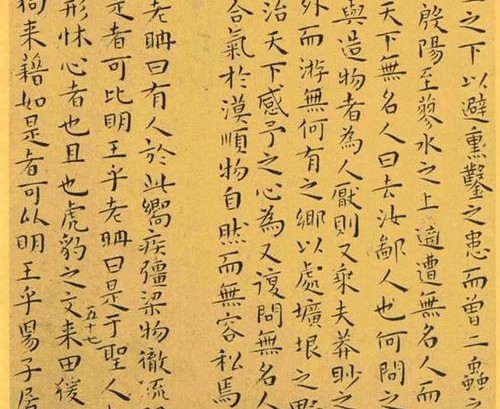 之下以避熏鑿之患而曾二蟲之
殷陽至蓼水之上適遭無名人而
天下無名人曰去汝鄙人也何問之
與造物者為人厭則又乘夫莽眇之
外而游無何有之鄉以處壙埌之野
治天下感予之心為又復問無名人
合氣於漠順物自然而無容私焉
老聃曰有人於此嚮疾彊梁物徹流
是者可比明王乎老聃曰是于聖人
五十七
形怵心者也且也虎豹之文来田猨
狗来藉如是者可比明王乎陽子居